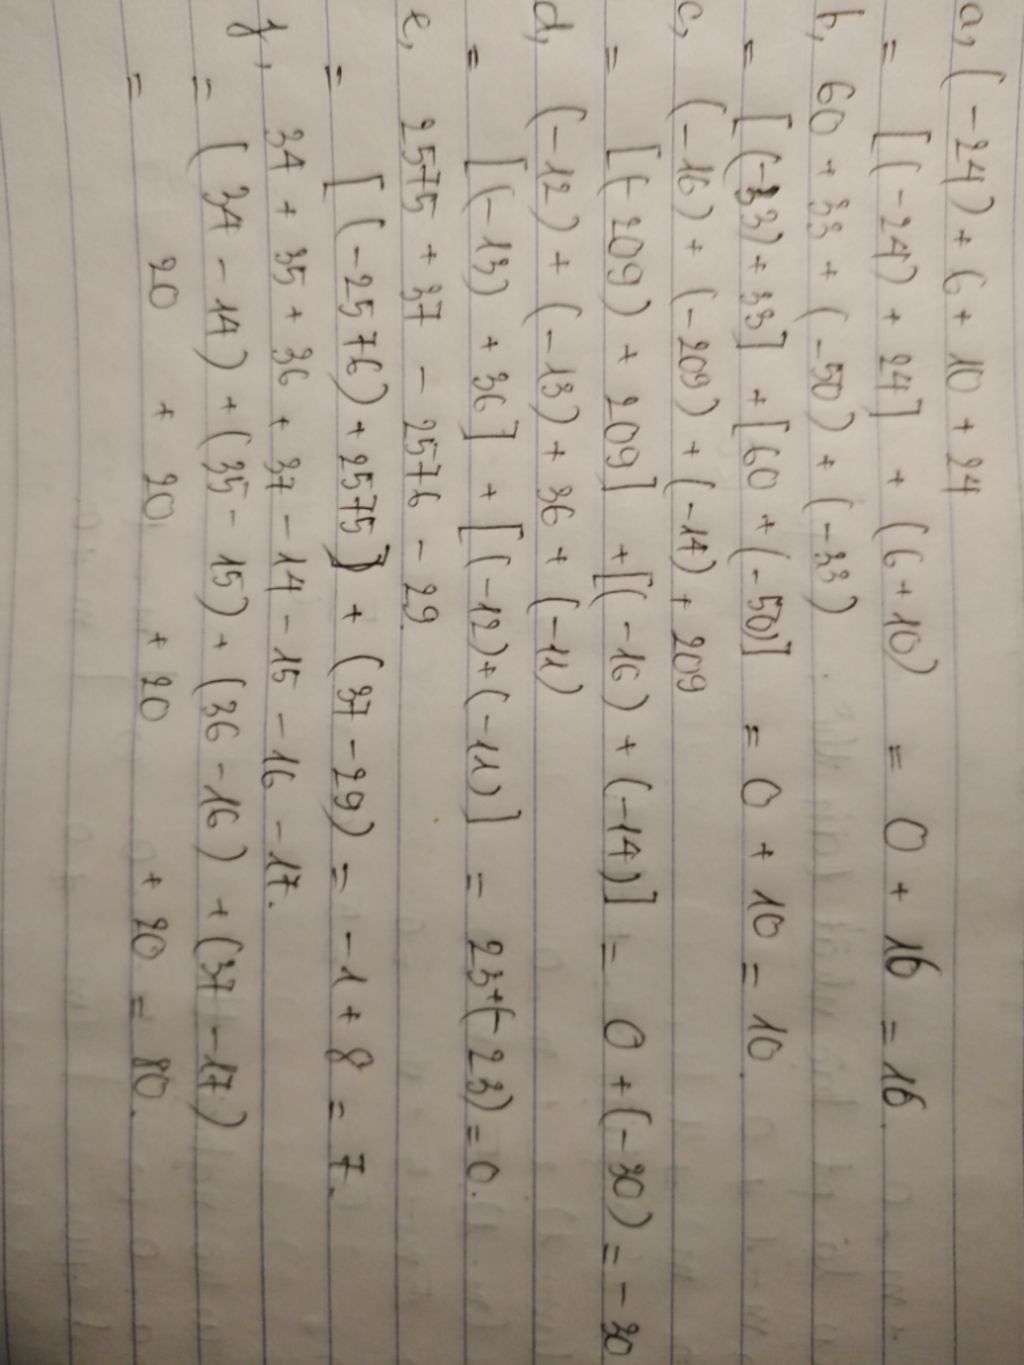 a, (-24) + 6 + 10 + 24
= [(-24) + 24] + (6 + 10) = 0 + 16 = 16
b, 60 + 33 + (-50) + (-33)
= [(-33) + 33] + [60 + (-50)] = 0 + 10 = 10.
c, (-16) + (-209) + (-14) + 209
= [(-209) + 209] + [(-16) + (-14)] = 0 + (-30) = -30
d, (-12) + (-13) + 36 + (-11)
= [(-13) + 36] + [(-12) + (-11)] = 23 + (-23) = 0.
e, 2575 + 37 - 2576 - 29
= [(-2576) + 2575] + (37 - 29) = -1 + 8 = 7.
f, 34 + 35 + 36 + 37 - 14 - 15 - 16 - 17.
= (34 - 14) + (35 - 15) + (36 - 16) + (37 - 17)
= 20 + 20 + 20 + 20 = 80.